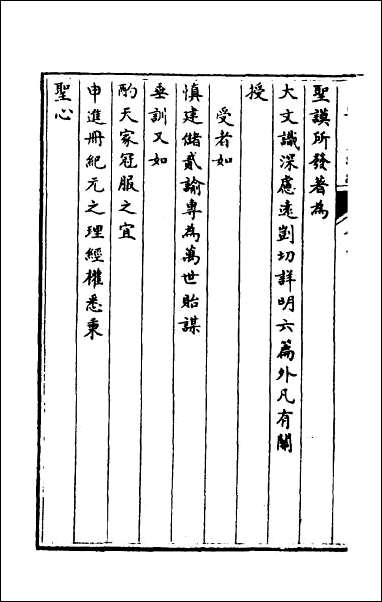 聖謨所發著為
大文識深慮遠剴切詳明六篇外凡有關
授
受者如
慎建儲貳諭專為萬世貽謀
垂訓又如
酌天家冠服之宜
申進冊紀元之理經權悉秉
聖心